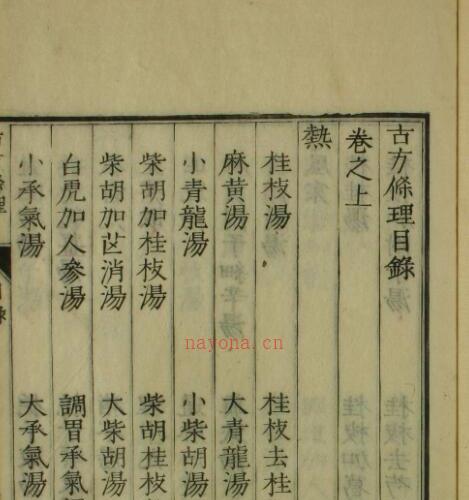 古方條理目錄
卷之上
熱
桂枝湯 桂枝去桂
麻黃湯 大青龍湯
小青龍湯 小柴胡湯
柴胡加桂枝湯 柴胡桂枝
柴胡加芒消湯 大柴胡湯
白虎加人參湯 調胃承氣湯
小承氣湯 大承氣湯
nayona.cn